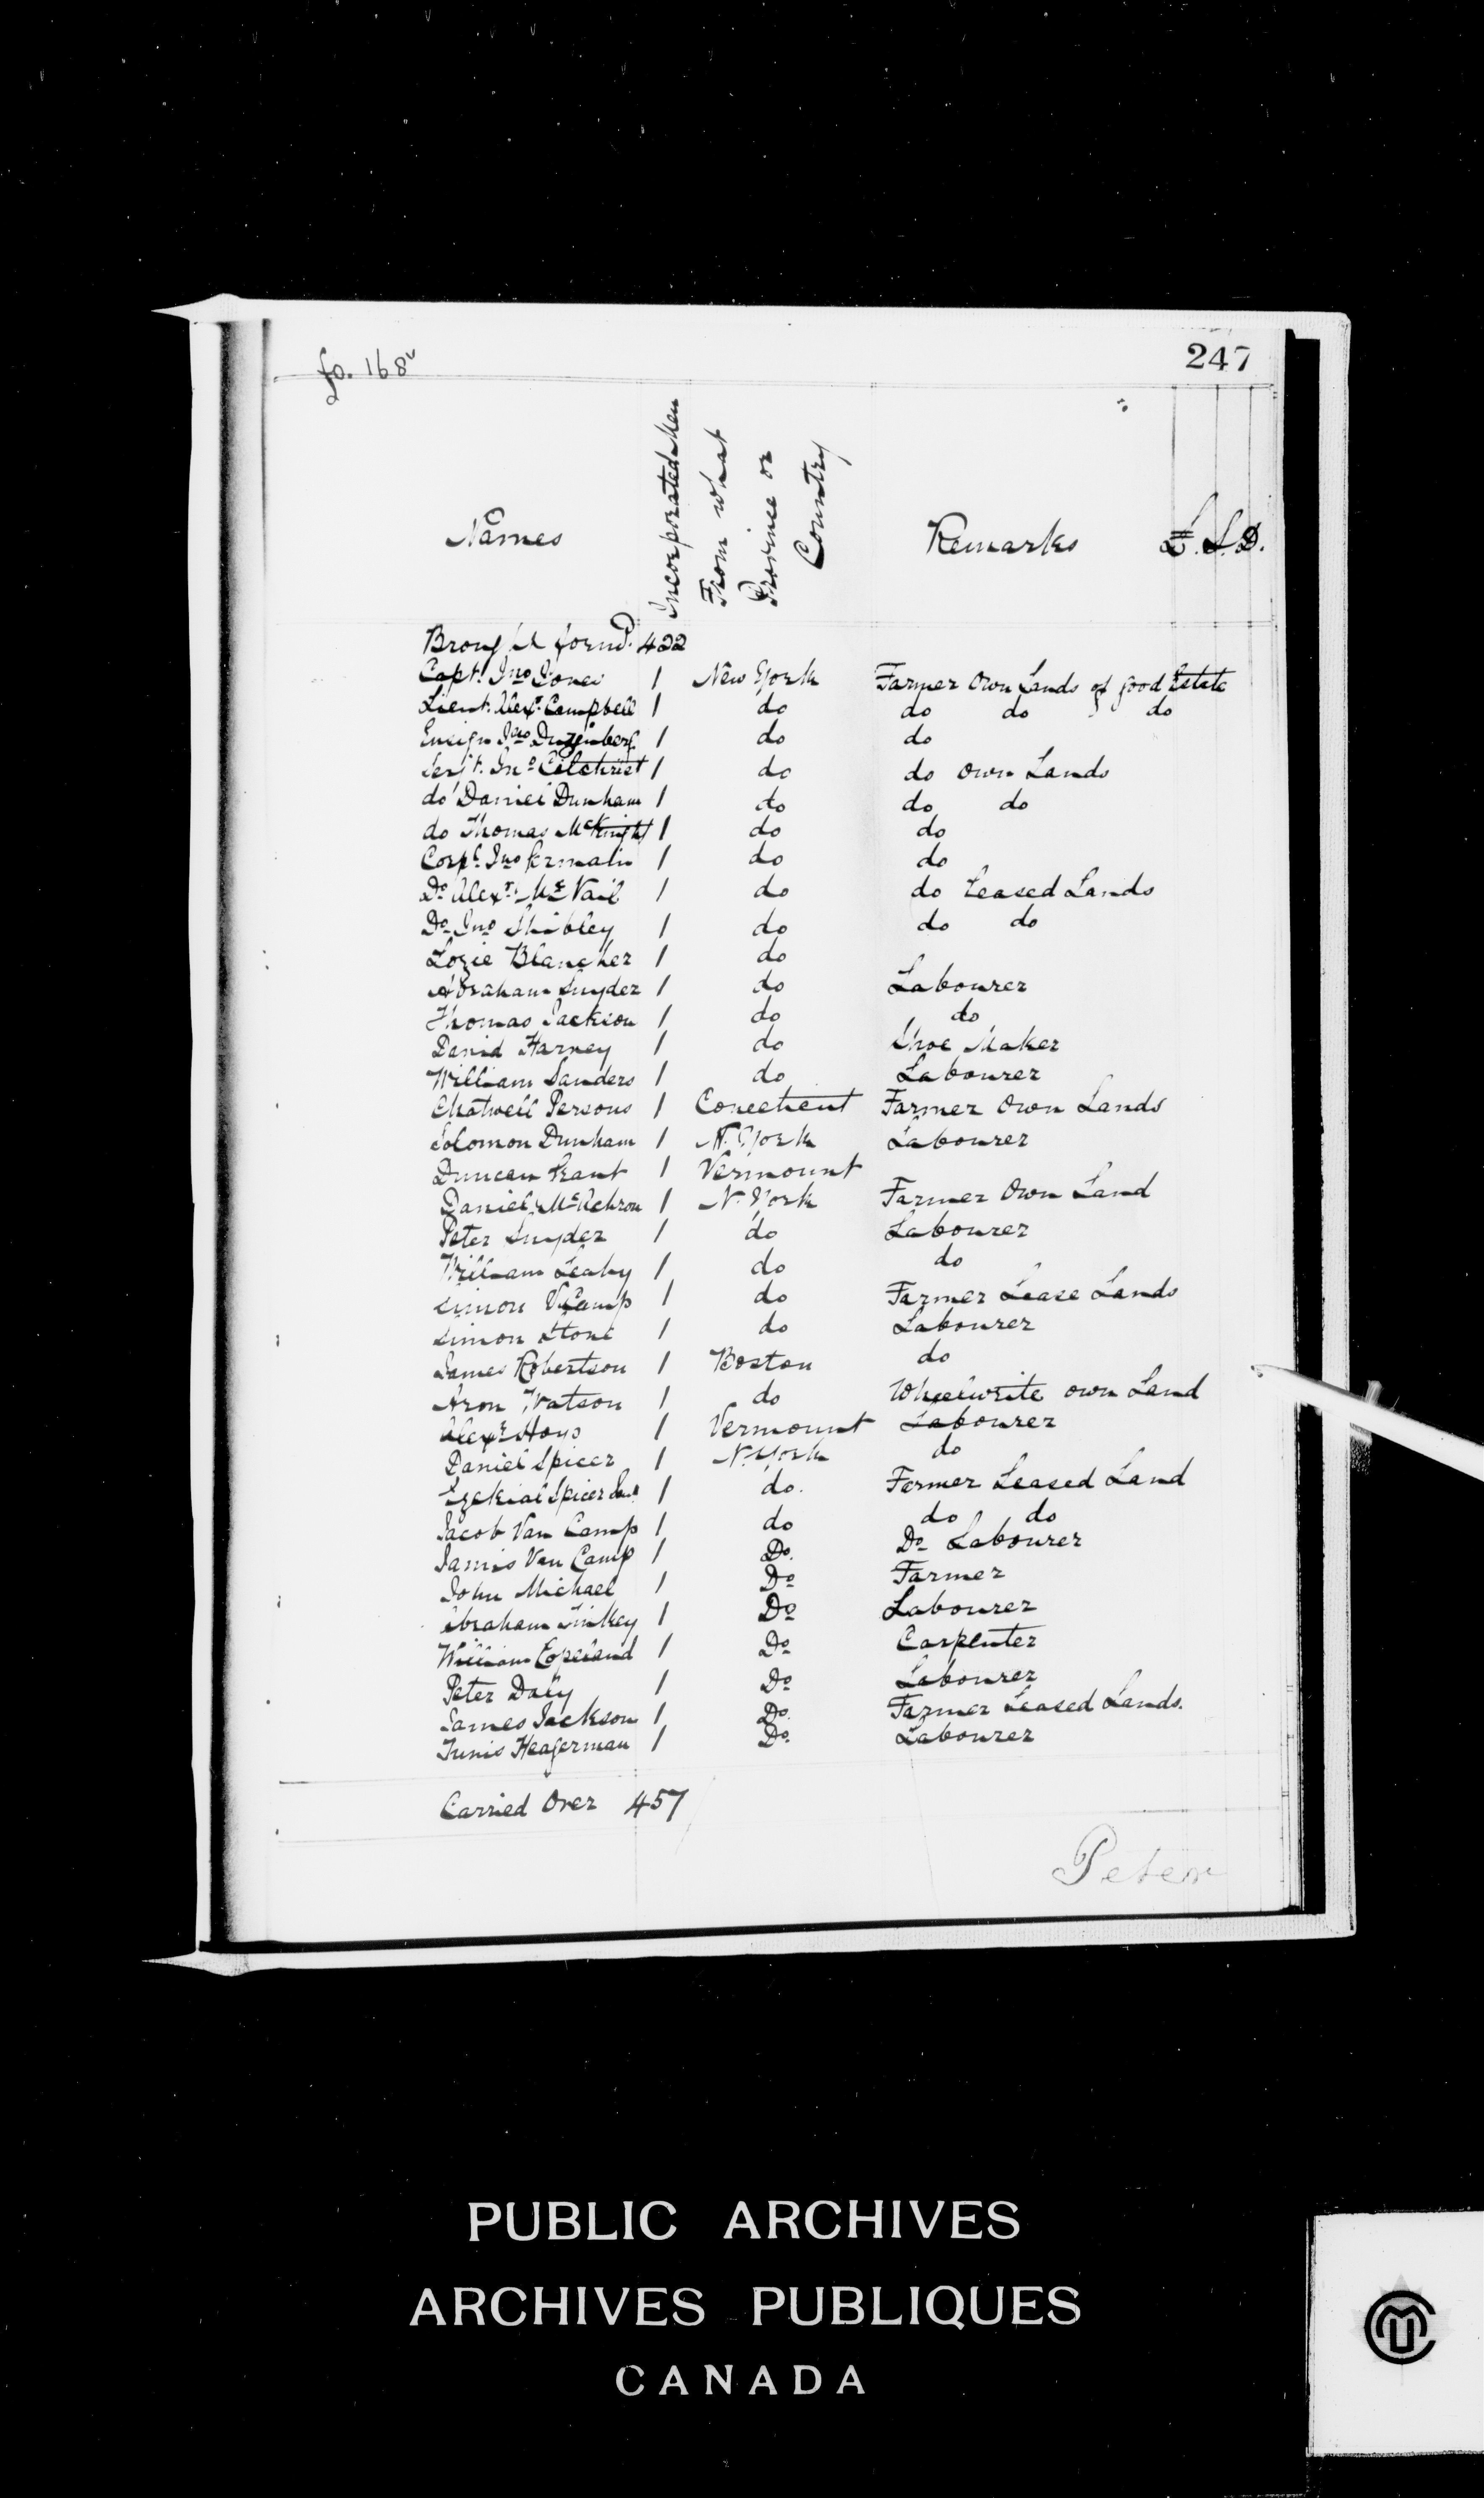 fo. 168v
247
Names Incorporated Men From what Province or Country Remarks £. S. D.
Brought forwd. 422
Capt. Jno Jones 1 New York Farmer Own Lands of good Estate
Lieut. Alexr. Campbell 1 do do do do
Ensign Jno Duzenberg 1 do do
Serjt. Jno Gilchrist 1 do do Own Lands
do Daniel Dunham 1 do do do
do Thomas McKnight 1 do do
Corpl Jno Germain 1 do do
Do Alexr. Mc Nail 1 do do Leased Lands
Do Jno Shibley 1 do do do
Lozie Blancher 1 do
Abraham Snyder 1 do Labourer
Thomas Jackson 1 do do
David Harney 1 do Shoe Maker
William Sanders 1 do Labourer
Chatwell Persons 1 Conecticut Farmer Own Lands
Solomon Dunham 1 N. York Labourer
Duncan Grant 1 Vermount
Daniel McAchron 1 N. York Farmer Own Land
Peter Snyder 1 do Labourer
William Leahy 1 do do
Simon VCamp 1 do Farmer Lease Lands
Simon Stone 1 do Labourer
James Robertson 1 Boston do
Aron Watson 1 do Wheelwrite own Land
Alexr Hays 1 Vermount Labourer
Daniel Spicer 1 N. York do
Ezekial Spicer 1 do. Farmer Leased Land
Jacob Van Camp 1 do do do
Jamis Van Camp 1 Do. Do Labourer
John Michael 1 Do Farmer
Abraham Finkey 1 Do Labourer
William Copeland 1 Do Carpenter
Peter Daly 1 Do Labourer
James Jackson 1 Do. Farmer Leased Lands.
Tunis Heagerman 1 Do. Labourer
Carried Over 457
Peter
PUBLIC ARCHIVES
ARCHIVES PUBLIQUES
CANADA